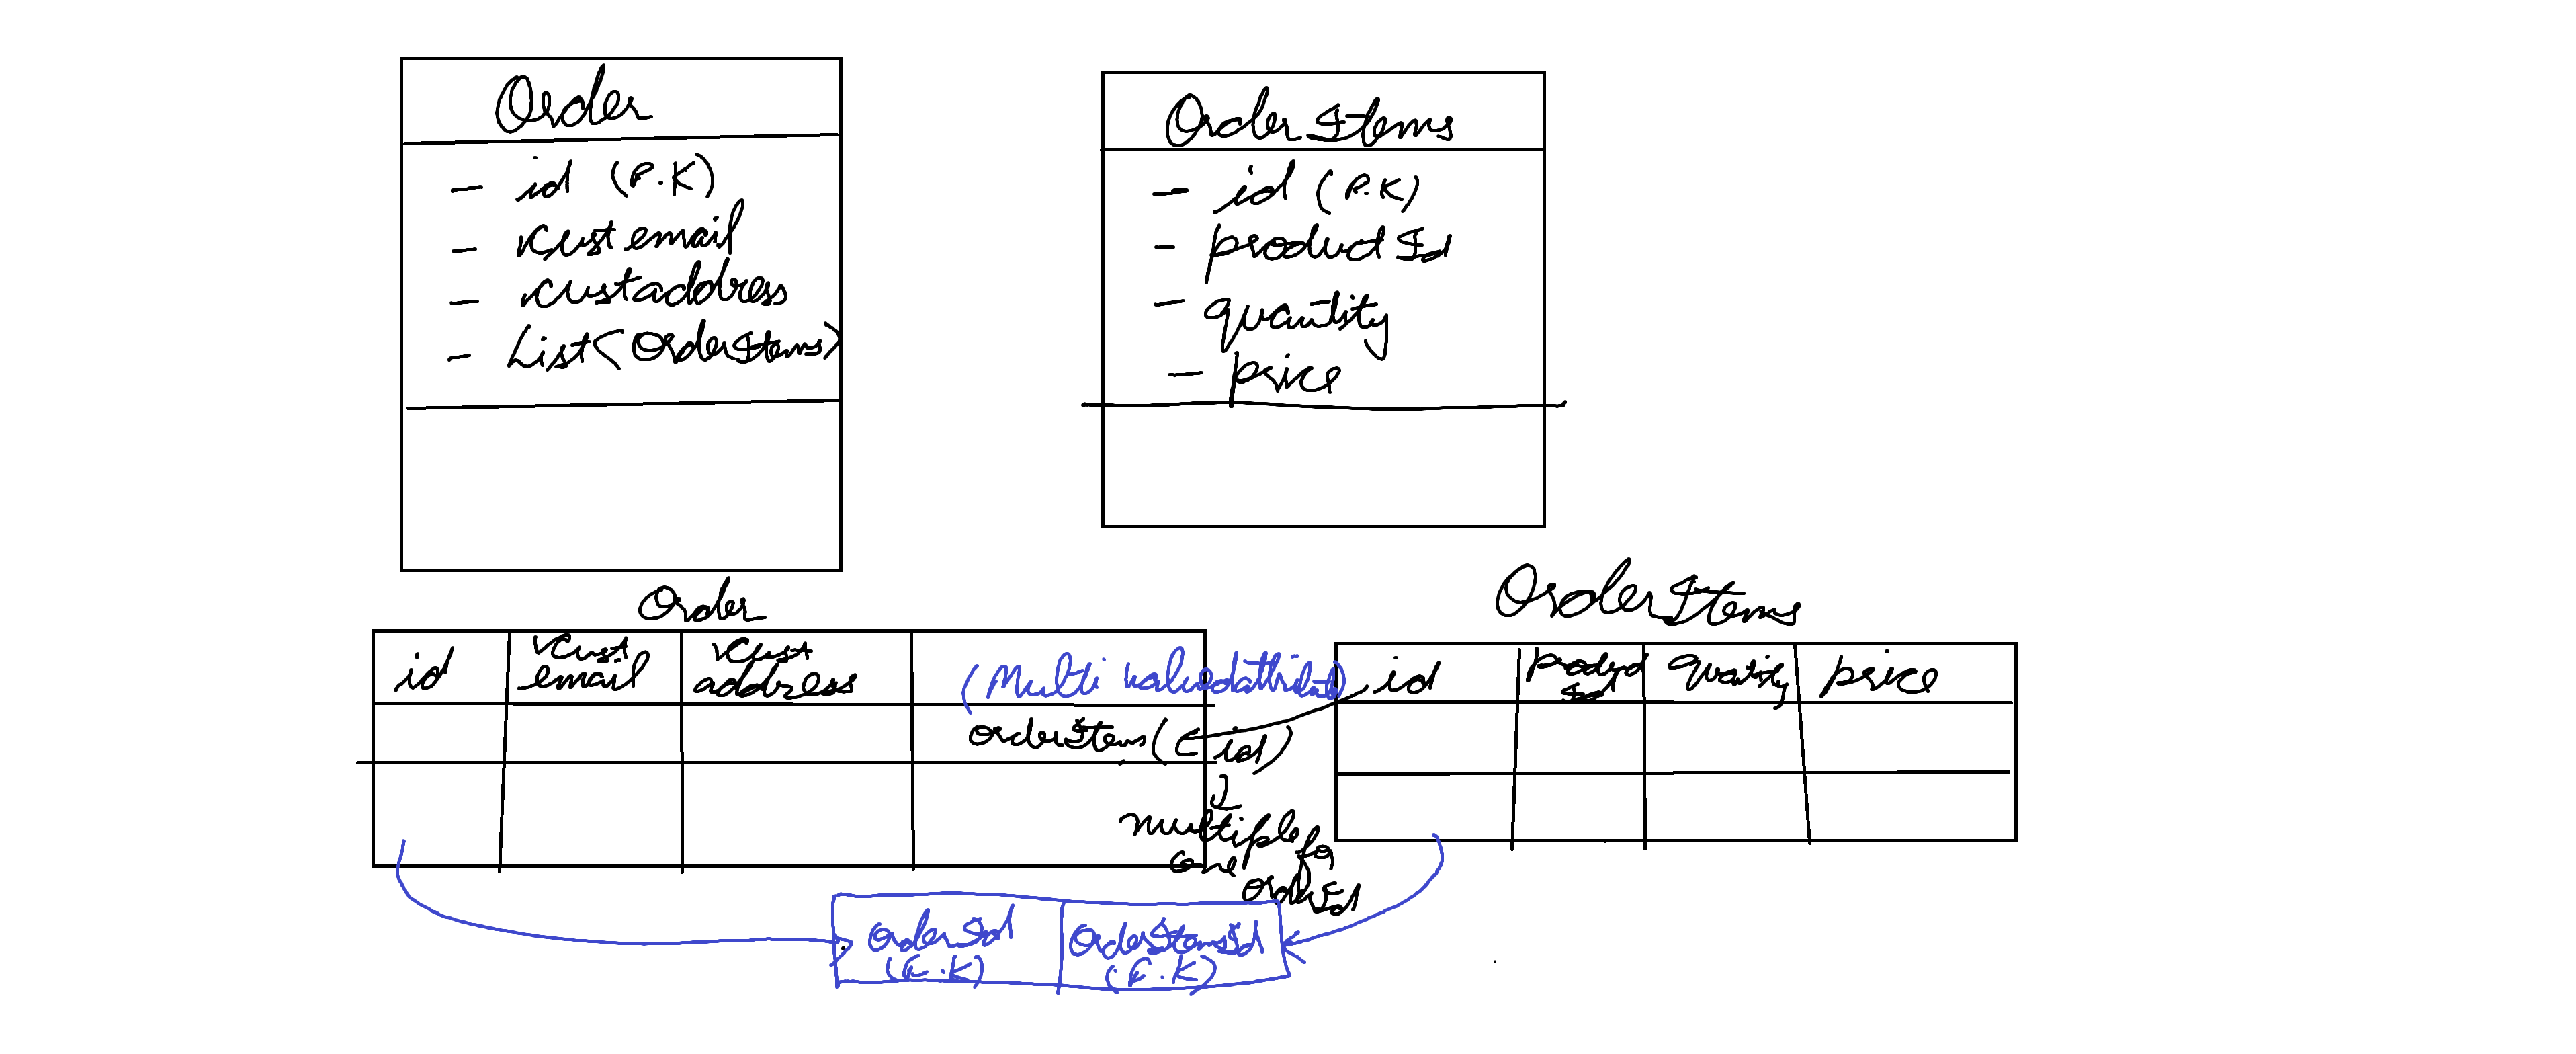 Order
- id (P.K)
- cust email
- custaddress
- List<OrderItems>
OrderItems
- id (P.K)
- productId
- quantity
- price
Order
id
cust email
cust address
(Multi valued attribute)
orderItems (id)
multiple for
one
orderId
OrderItems
id
product Id
quantity
price
OrderId
(F.K)
OrderItemsId
(F.K)